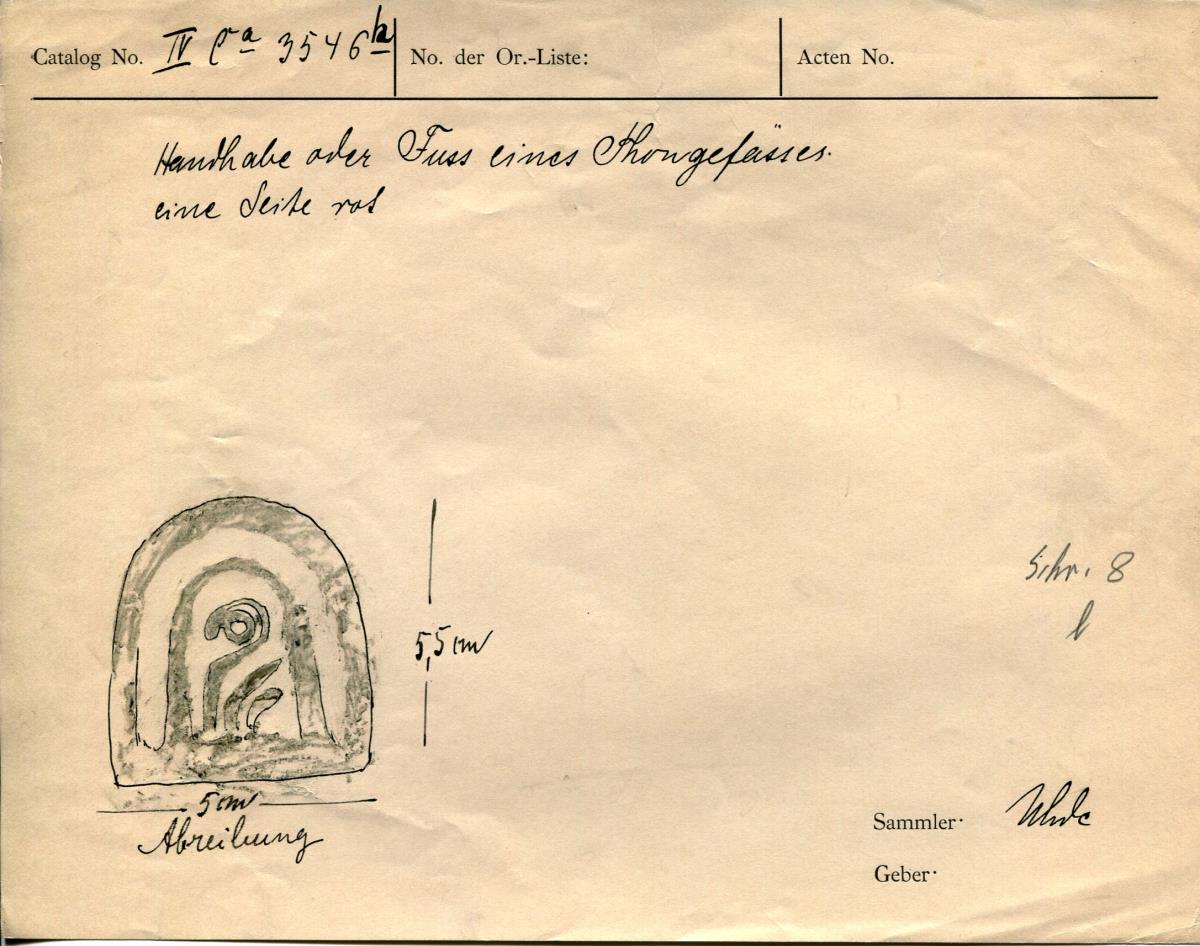 Catalog No. IV Ca 3546 b
No. der Or.-Liste:
Acten No.
Handhabe oder Fuss eines Thongefässes.
eine Seite rot
Schr. 8
l
5,5 cm
5 cm
Abreibung
Sammler: Uhde
Geber: